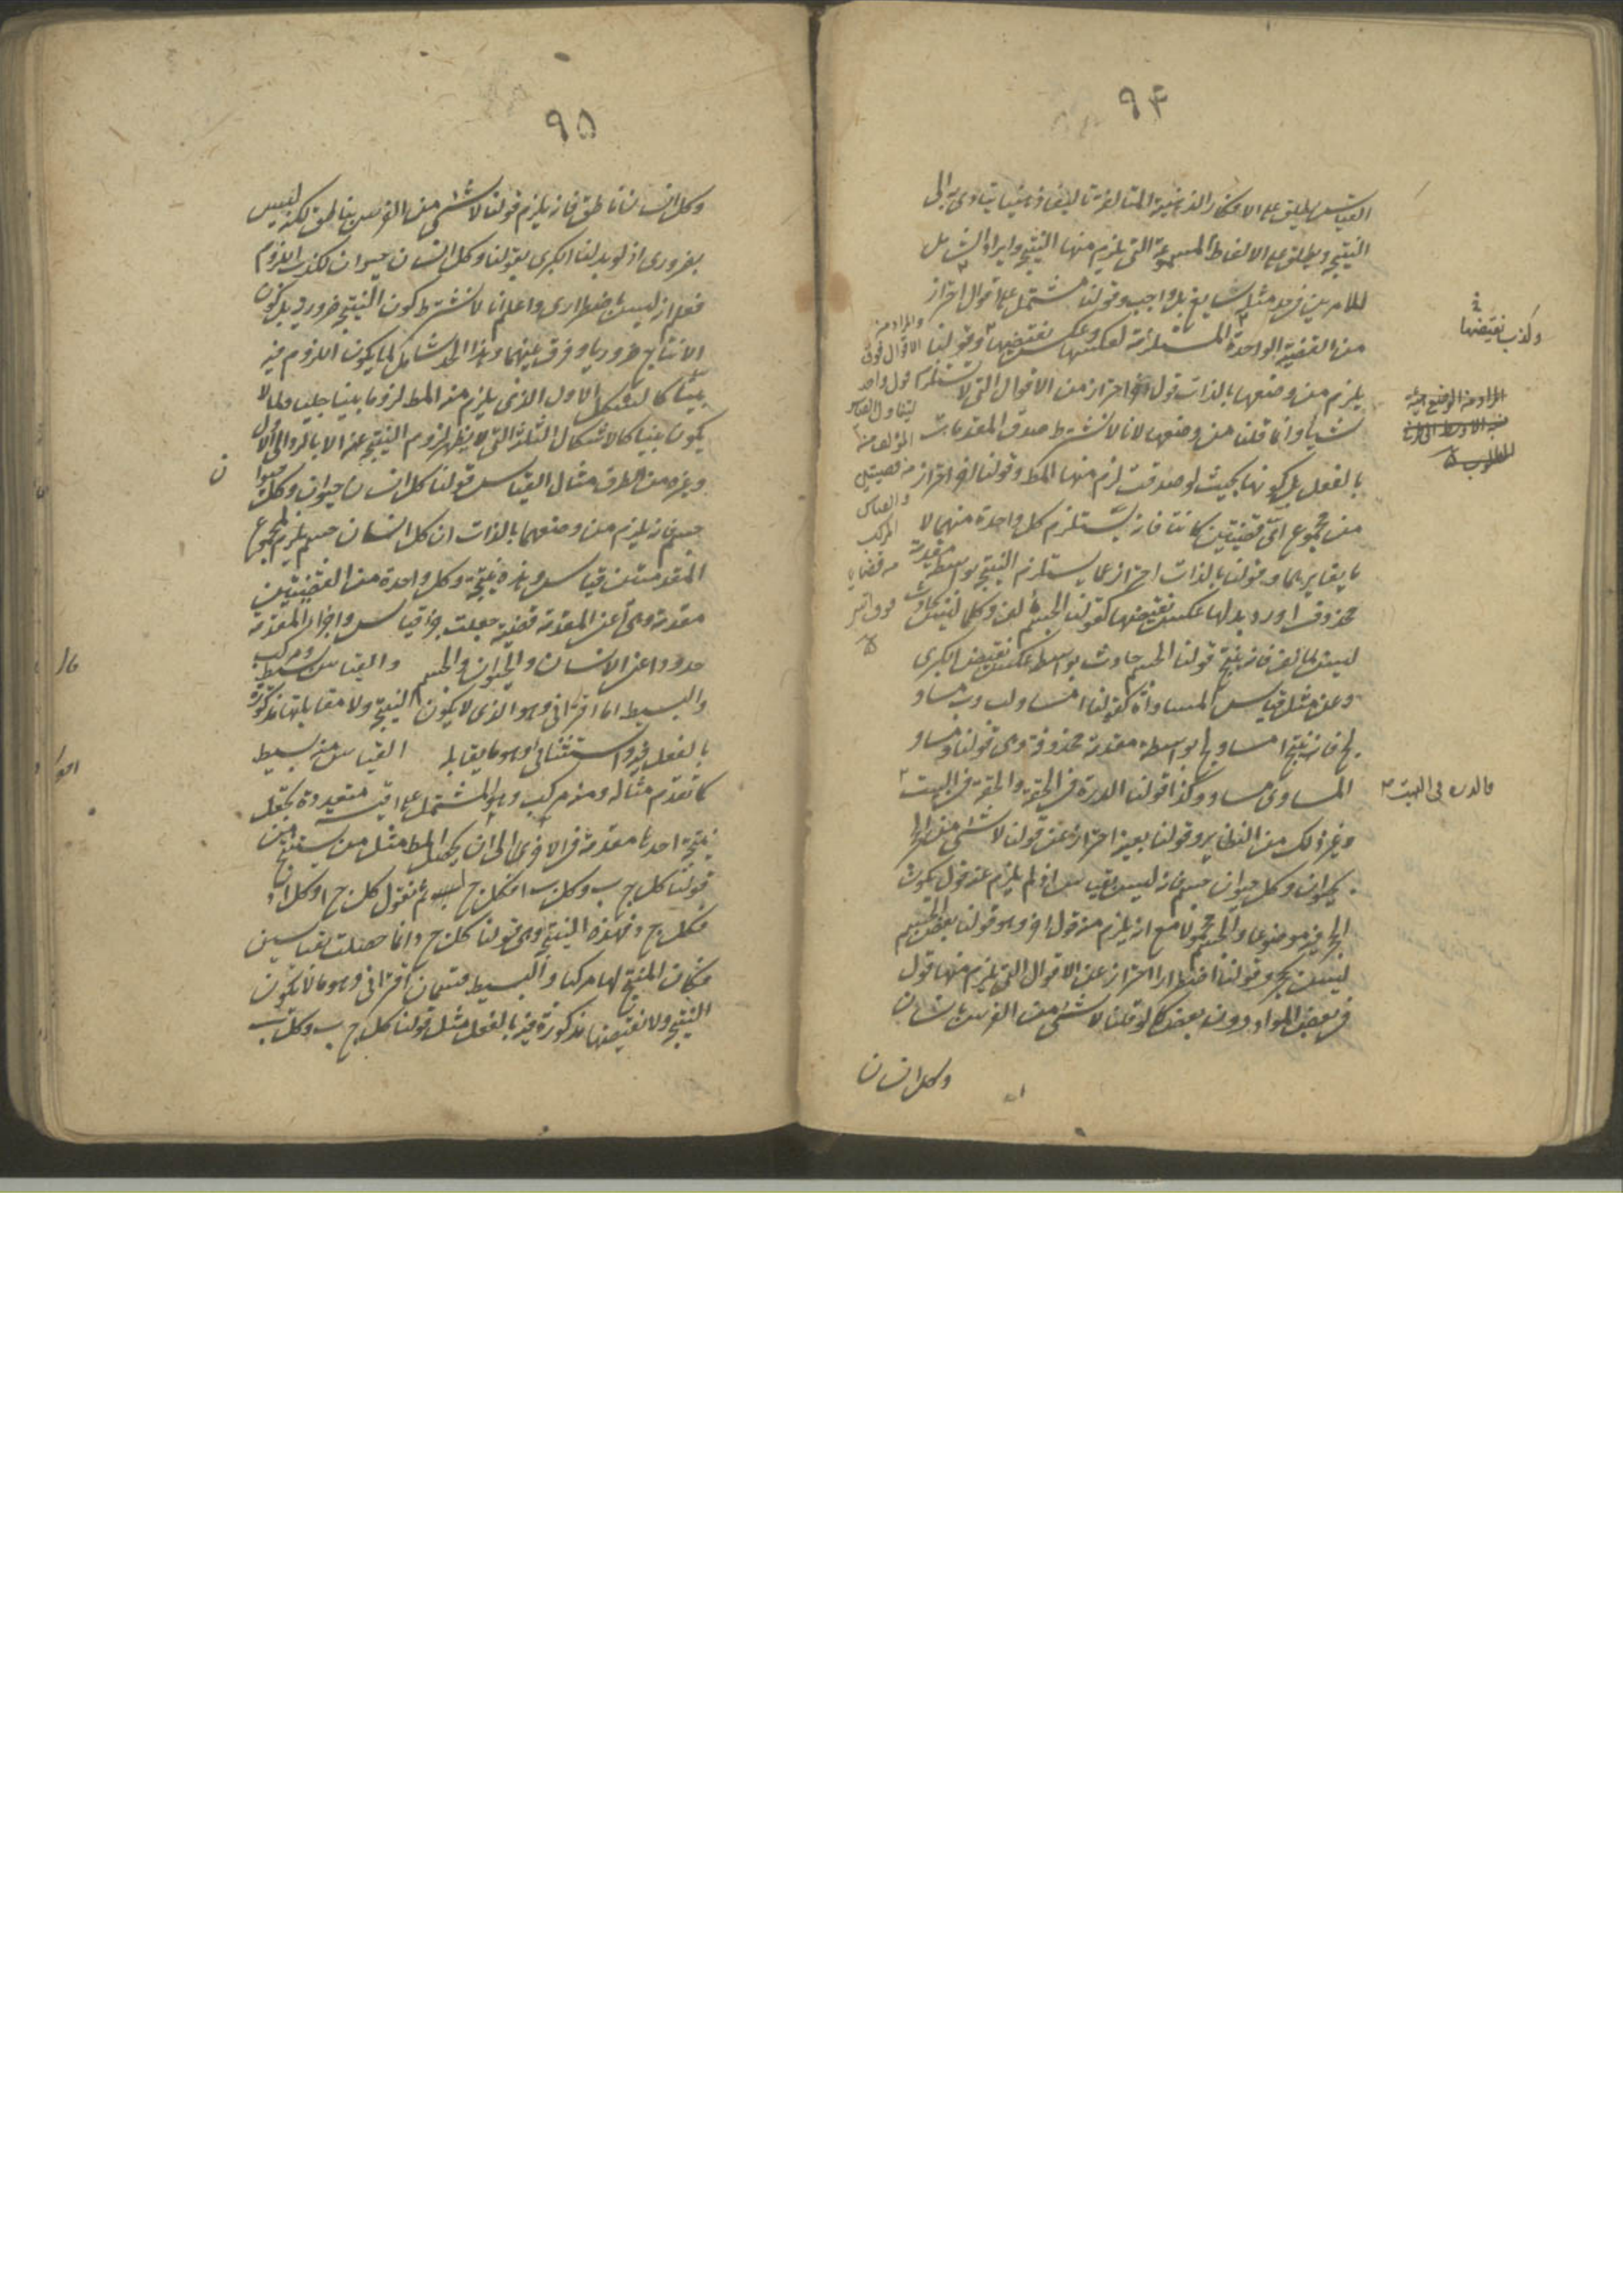 ٩٤
القياس يطلق على الافكار الذهنية المتالفة تاليفا ذهنيا يتادى به الى
النتيجة ويطلق على الالفاظ المسموعة التى يلزم منها النتيجة وايراد الشامل
للامرين فى حد مثله شايع بل واجب وقولنا مشتمل على اقوال احتراز
من القضية الواحدة المستلزمة لعكسها وعكس نقيضها وقولنا
يلزم من وضعها بالذات قول احتراز من الاقوال التى لا تستلزم
شيئا وانما قلنا من وضعها لانا لا نشترط صدق المقدمات
بالفعل بل كونها بحيث لو صدقت لزم منها المط وقولنا اخر احتراز
من مجموع اى قضيتين كانتا فانه يستلزم كل واحدة منهما لا
ما يغايرهما وقولنا بالذات احتراز عما يستلزم النتيجة بواسطة مقدمة
محذوفة اورد بدلها عكس نقيضها كقولنا الجسم مؤلف وكلما ليس بحادث
ليس بمؤلف فانه ينتج قولنا الجسم حادث بواسطة عكس نقيض الكبرى
وعن مثل قياس المساواة كقولنا ا مساو لب وب مساو
لج فانه ينتج ا مساو لج بواسطة مقدمة محذوفة وهى قولنا ومساو
المساوى مساو وكذا قولنا الدرة فى الحقة والحقة فى البيت
وغير ذلك من النظاير وقولنا بعينه احتراز عن قولنا لا شئ من الحجر
بحيوان وكل حيوان جسم فانه ليس بقياس اذ لم يلزم عنه قول يكون
الحجر فيه موضوعا والجسم محمولا مع انه يلزم منه قول اخر وهو قولنا بعض الجسم
ليس بحجر وقولنا اضطرارا احتراز عن الاقوال التى يلزم منها قول
فى بعض المواد دون بعض كما لو قلنا لا شئ من الفرس بانسان
وكل انسان
وكذب نقيضها
فالدرة فى البيت
والمراد من
الاقوال فوق
قول واحد
ليتناول القياس
المؤلف من
من قضيتين
والقياس
المركب
من قضايا
فوق اثنين
٩٥
وكل انسان ناطق فانه يلزم قولنا لا شئ من الفرس بناطق لكنه ليس
بضرورى اذ لو بدلنا الكبرى بقولنا وكل انسان حيوان لكذب اللزوم
فعلم انه ليس باضطرارى واعلم انا لا نشترط كون النتيجة ضرورية بل كون
الانتاج ضروريا وفرق بينهما وهذا الحد شامل لما يكون اللزوم فيه
بينا كالشكل الاول الذى يلزم منه المط لزوما بينا جليا ولما لا
يكون بينا كالاشكال الثلثة التى لا يظهر لزوم النتيجة عنه الا بالرد الى الاول
وغيره من الطرق مثال القياس قولنا كل انسان حيوان وكل حيوان
جسم فانه يلزم من وضعهما بالذات ان كل انسان جسم فمجموع
المقدمتين قياس وهذه نتيجة وكل واحدة من القضيتين
مقدمة وهى اعنى المقدمة قضية جعلت جزء قياس واجزاء المقدمة
حدودا اعنى الانسان والحيوان والجسم والقياس بسيط ومركب
والبسيط اما اقترانى وهو الذى لا يكون النتيجة ولا مقابلتها مذكورة
بالفعل فيه واستثنائى وهو ما يقابله القياس منه بسيط
كما تقدم مثاله ومنه مركب وهو المشتمل على اقيسة متعددة يجعل
نتيجة احدها مقدمة فى الاخرى الى ان يحصل المط مثل من يستنتج من
قولنا كل ج ب وكل ب ا فكل ج ا ثم نقول كل ج ا وكل ا د
فكل ج د فهذه النتيجة وهى قولنا كل ج د انما حصلت بقياسين
فكان المنتج لها مركبا والبسيط قسمان اقترانى وهو ما لا يكون
النتيجة ولا نقيضها مذكورة فيه بالفعل مثل قولنا كل ج ب وكل ب